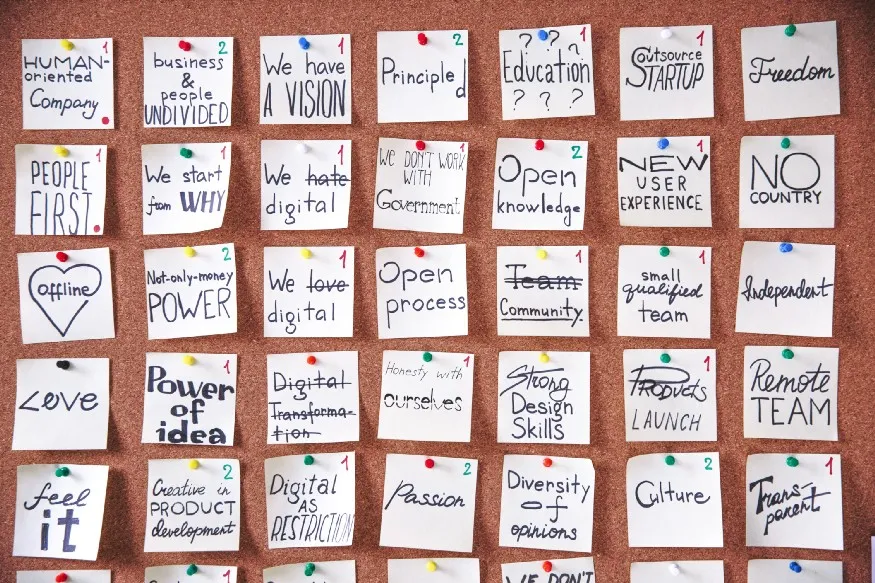 HUMAN-
oriented
Company
1
business
&
people
UNDIVIDED
2
We have
A VISION
1
Principled
2
? ? ?
Education
? ? ?
1
Outsource
STARTUP
1
Freedom
PEOPLE
FIRST
1
We start
from WHY
1
We hate
digital
1
WE DON'T WORK
WITH
Government
1
Open
knowledge
2
NEW
USER
EXPERIENCE
1
NO
COUNTRY
offline
Not-only-money
POWER
2
We love
digital
1
Open
process
Team
Community
1
small
qualified
team
1
Independent
Love
Power
of
idea
1
Digital
Transforma-
tion
Honesty with
ourselves
1
Strong
Design
Skills
Products
LAUNCH
1
Remote
TEAM
feel
it
Creative in
PRODUCT
development
2
Digital
AS
RESTRICTION
1
Passion
2
Diversity
of
opinions
Culture
2
Trans-
parent
1
2
1
WE DON'T